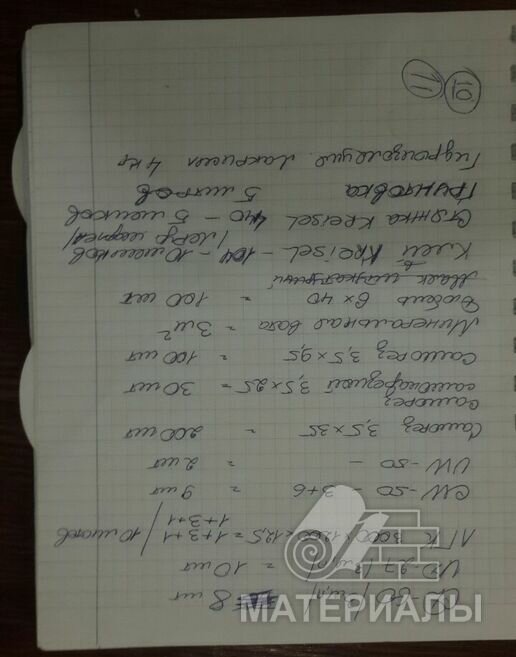 CD-60 (3м,п) = 8 шт
UD-27 (3м,п) = 10 шт
ЛГК 3000×1200×12,5 = 1+3+1 / 10 листов
1+3+1
CW-50 - 3+6 = 9 шт
UW-50 - = 2 шт
Саморез 3,5×35 = 200 шт
саморез
самонарезной 3,5×25 = 30 шт
саморез 3,5×9,5 = 100 шт
Минеральная вата = 3м²
Дюбель 6×40 = 100 шт
Клей Kreisel - 104 - 10 мешков
Стяжка Kreisel 440 - 5 мешков
Грунтовка 5 литров
Гидроизоляция 4 кг
10
11
МАТЕРИАЛЫ